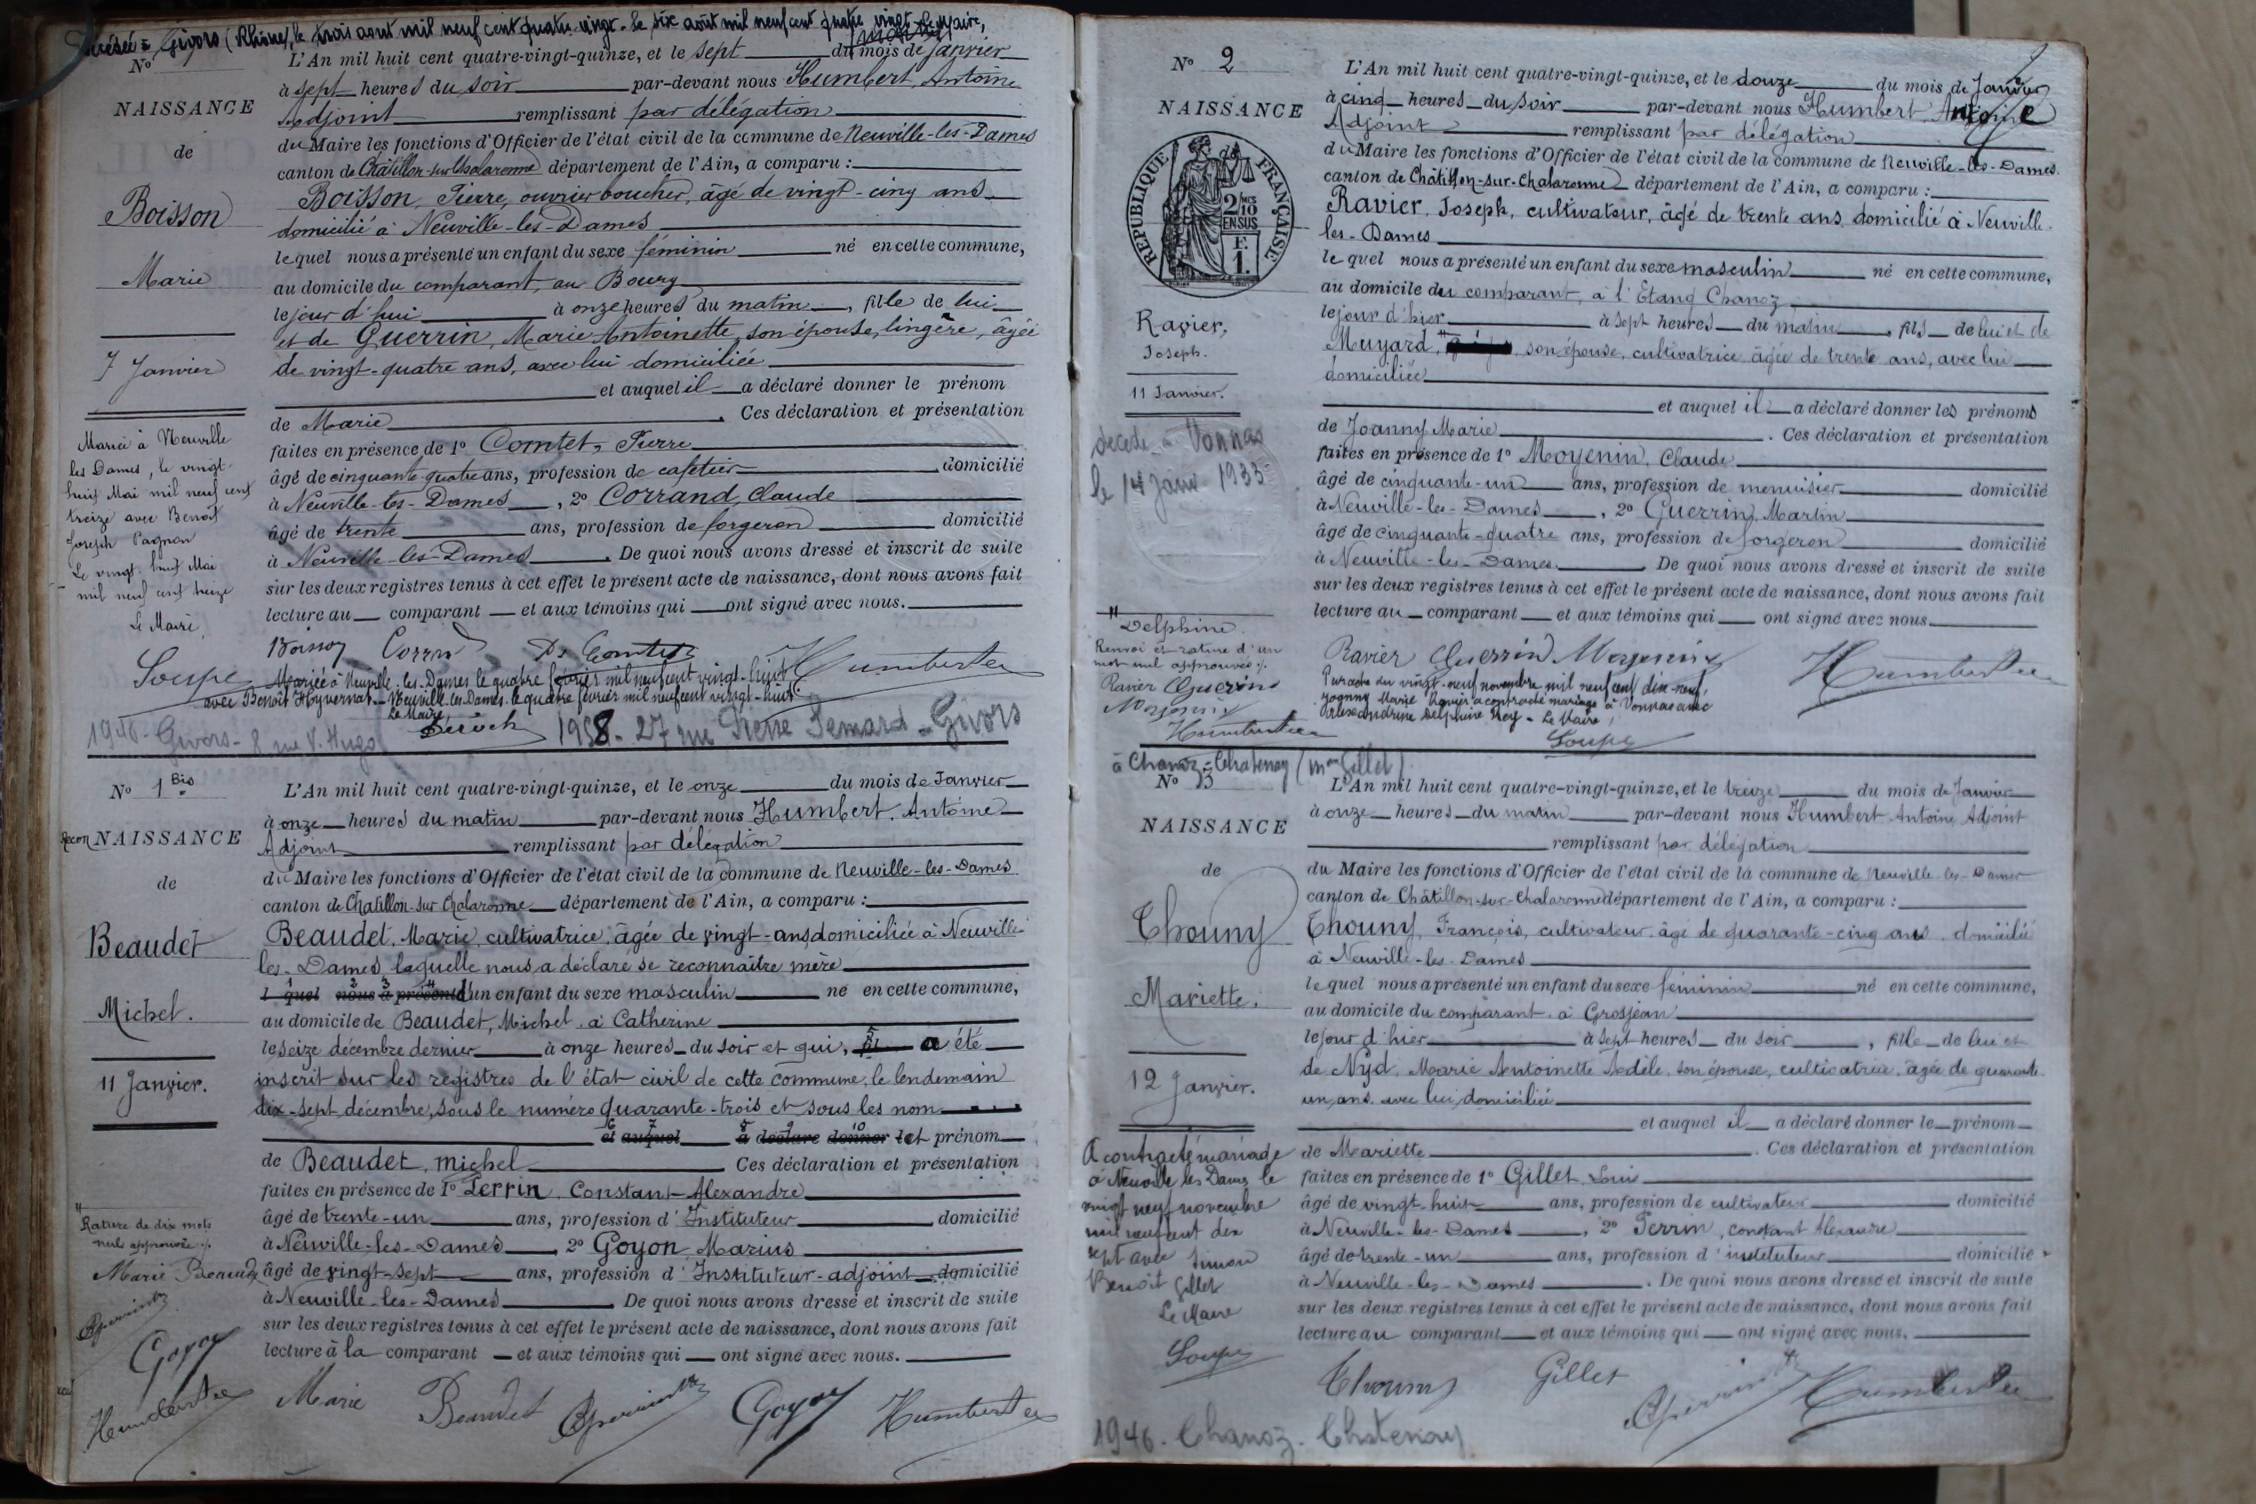 Givors (Rhône), le trois aout mil neuf cent quatre-vingt. le six août mil neuf cent quatre vingt Le Maire,
N°
NAISSANCE
de
Boisson
Marie
7 Janvier
L'An mil huit cent quatre-vingt-quinze, et le sept du mois de Janvier
à sept heures du soir par-devant nous Humbert, Antoine
Adjoint remplissant par délégation
du Maire les fonctions d'Officier de l'état civil de la commune de Neuville-les-Dames
canton de Châtillon-sur-Chalaronne département de l'Ain, a comparu :
Boisson, Pierre, ouvrier boucher, âgé de vingt-cinq ans
domicilié à Neuville-les-Dames
lequel nous a présenté un enfant du sexe féminin né en cette commune,
au domicile du comparant, au Bourg
le jour d'hui à onze heures du matin, fille de lui
et de Guerrin, Marie Antoinette, son épouse, lingère, âgée
de vingt-quatre ans, avec lui domiciliée
et auquel il a déclaré donner le prénom
de Marie. Ces déclaration et présentation
faites en présence de 1° Comtet, Pierre
âgé de cinquante-quatre ans, profession de cafetier domicilié
à Neuville-les-Dames, 2° Corrand, Claude
âgé de trente ans, profession de forgeron domicilié
à Neuville-les-Dames. De quoi nous avons dressé et inscrit de suite
sur les deux registres tenus à cet effet le présent acte de naissance, dont nous avons fait
lecture au comparant et aux témoins qui ont signé avec nous.
Mariée à Neuville
les Dames, le vingt
huit Mai mil neuf cent
treize avec Benoît
Joseph Pagnon
Le vingt huit Mai
mil neuf cent treize
Le Maire,
Soupe
Boisson Corrand Comtet Humbert
Mariée à Neuville-les-Dames le quatre février mil neuf cent vingt-huit
avec Benoît Hyvernat. Neuville-les-Dames le quatre février mil neuf cent vingt-huit.
Le Maire
1946. Givors. 8 rue V. Hugo 1958. 27 rue Pierre Semard. Givors
N° 1 Bis
Recon NAISSANCE
de
Beaudet
Michel.
11 Janvier.
L'An mil huit cent quatre-vingt-quinze, et le onze du mois de Janvier
à onze heures du matin par-devant nous Humbert, Antoine
Adjoint remplissant par délégation
du Maire les fonctions d'Officier de l'état civil de la commune de Neuville-les-Dames
canton de Châtillon-sur-Chalaronne département de l'Ain, a comparu :
Beaudet, Marie, cultivatrice, âgée de vingt-ans, domiciliée à Neuville-
les-Dames, laquelle nous a déclaré se reconnaître mère
l quel nous a présenté d'un enfant du sexe masculin né en cette commune,
au domicile de Beaudet, Michel, à Catherine
le seize décembre dernier à onze heures du soir et qui, fil a été
inscrit sur les registres de l'état civil de cette commune, le lendemain
dix-sept décembre, sous le numéro quarante-trois et sous les nom
et auquel a déclaré donner le et prénom
de Beaudet, michel Ces déclaration et présentation
faites en présence de 1° Perrin, Constant-Alexandre
âgé de trente-un ans, profession d'Instituteur domicilié
à Neuville-les-Dames, 2° Goyon, Marius
âgé de vingt-sept ans, profession d'Instituteur-adjoint domicilié
à Neuville-les-Dames De quoi nous avons dressé et inscrit de suite
sur les deux registres tenus à cet effet le présent acte de naissance, dont nous avons fait
lecture à la comparant et aux témoins qui ont signé avec nous.
Rature de dix mots
nuls approuvée
Marie Beaudet
Goyon
Humbert
Marie Beaudet Goyon Humbert
N° 2
2
NAISSANCE
de
REPUBLIQUE FRANÇAISE
2/10 EN SUS
F. 1.
Ravier,
Joseph.
11 Janvier.
L'An mil huit cent quatre-vingt-quinze, et le douze du mois de Janvier
à cinq heures du soir par-devant nous Humbert, Antoine
Adjoint remplissant par délégation
du Maire les fonctions d'Officier de l'état civil de la commune de Neuville-les-Dames
canton de Châtillon-sur-Chalaronne département de l'Ain, a comparu :
Ravier, Joseph, cultivateur, âgé de trente ans, domicilié à Neuville-
les-Dames
lequel nous a présenté un enfant du sexe masculin né en cette commune,
au domicile du comparant, à l'Etang Chanoz
le jour d'hier à sept heures du matin, fils de lui et de
Muyard, son épouse, cultivatrice âgée de trente ans, avec lui
domiciliée
et auquel il a déclaré donner les prénoms
de Joanny Marie. Ces déclaration et présentation
faites en présence de 1° Moyenin, Claude
âgé de cinquante-un ans, profession de menuisier domicilié
à Neuville-les-Dames, 2° Guerrin, Martin
âgé de cinquante-quatre ans, profession de forgeron domicilié
à Neuville-les-Dames. De quoi nous avons dressé et inscrit de suite
sur les deux registres tenus à cet effet le présent acte de naissance, dont nous avons fait
lecture au comparant et aux témoins qui ont signé avec nous
décédé à Vonnas
le 14 Janv 1933
Delphine
Renvoi et rature d'un
mot nul approuvés
Ravier Guerrin
Moyenin
Humbert
Ravier Guerrin Moyenin Humbert
Par acte du vingt-neuf novembre mil neuf cent dix-neuf,
Joanny Marie Ravier a contracté mariage à Vonnas avec
Alexandrine Delphine Rey. Le Maire,
Soupe
à Chanoz-Chatenay (mon Gillet)
N° 3
NAISSANCE
de
Thouny
Mariette.
12 Janvier.
L'An mil huit cent quatre-vingt-quinze, et le treize du mois de Janvier
à onze heures du matin par-devant nous Humbert Antoine Adjoint
remplissant par délégation
du Maire les fonctions d'Officier de l'état civil de la commune de Neuville-les-Dames
canton de Châtillon-sur-Chalaronne département de l'Ain, a comparu :
Thouny, François, cultivateur, âgé de quarante-cinq ans, domicilié
à Neuville-les-Dames
lequel nous a présenté un enfant du sexe féminin né en cette commune,
au domicile du comparant, à Grosjean
le jour d'hier à sept heures du soir, fille de lui et
de Nyd, Marie Antoinette Adèle, son épouse, cultivatrice, âgée de quarante
un ans, avec lui domiciliée
et auquel il a déclaré donner le prénom
de Mariette. Ces déclaration et présentation
faites en présence de 1° Gillet, Louis
âgé de vingt-huit ans, profession de cultivateur domicilié
à Neuville-les-Dames, 2° Perrin, constant Alexandre
âgé de trente-un ans, profession d'instituteur domicilié
à Neuville-les-Dames. De quoi nous avons dressé et inscrit de suite
sur les deux registres tenus à cet effet le présent acte de naissance, dont nous avons fait
lecture au comparant et aux témoins qui ont signé avec nous.
A contracté mariage
à Neuville les Dames le
vingt neuf novembre
mil neuf cent dix
sept avec Simon
Benoît Gillet
Le Maire
Soupe
Thouny Gillet Humbert
1946. Chanoz. Chatenay